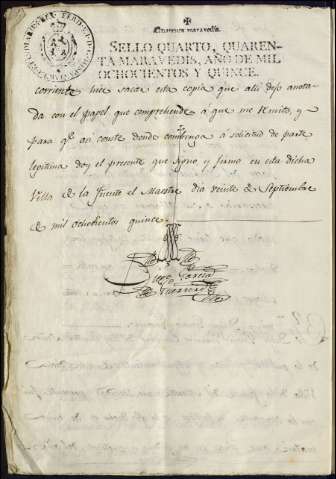 SELLO QUARTO, QUAREN-
TA MARAVEDIS, AÑO DE MIL
OCHOCIENTOS Y QUINCE.
corriente hice sacar esta copia que alli dejo anota-
da con el papel que comprehende a que me remito, y
para qe asi conste donde combenga a solicitud de parte
legitima doy el presente que signo y firmo en esta dicha
Villa de la Fuente el Maestre dia veinte de Septiembre
de mil ochocientos quince
Garcia